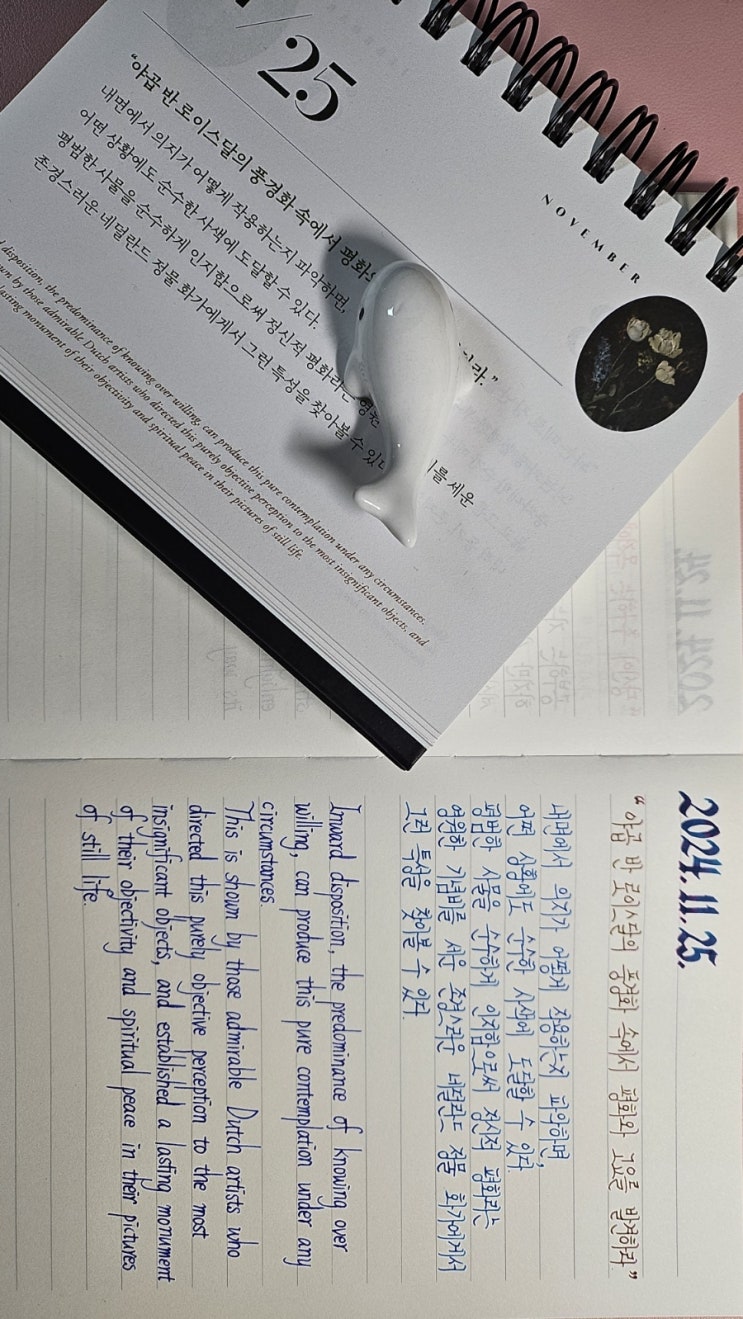 /25
NOVEMBER
“야곱 반 로이스달의 풍경화 속에서
내면에서 의지가 어떻게 작용하는지 파악하면,
어떤 상황에도 순수한 사색에 도달할 수 있다.
평범한 사물을 순수하게 인지함으로써 정신적 평화라는 세운
존경스러운 네덜란드 정물 화가에게서 그런 특성을 찾아볼 수
disposition, the predominance of knowing over willing, can produce this pure contemplation under any circumstances.
by those admirable Dutch artists who directed this purely objective perception to the most insignificant objects, and
lasting monument of their objectivity and spiritual peace in their pictures of still life.
2024. 11. 25.
“야곱 반 로이스달의 풍경화 속에서 평화와 고요를 발견하라”
내면에서 의지가 어떻게 작용하는지 파악하면,
어떤 상황에도 순수한 사색에 도달할 수 있다.
평범한 사물을 순수하게 인지함으로써 정신적 평화라는
영원한 기념비를 세운 존경스러운 네덜란드 정물 화가에게서
그런 특성을 찾아볼 수 있다.
Inward disposition, the predominance of knowing over
willing, can produce this pure contemplation under any
circumstances.
This is shown by those admirable Dutch artists who
directed this purely objective perception to the most
insignificant objects, and established a lasting monument
of their objectivity and spiritual peace in their pictures
of still life.